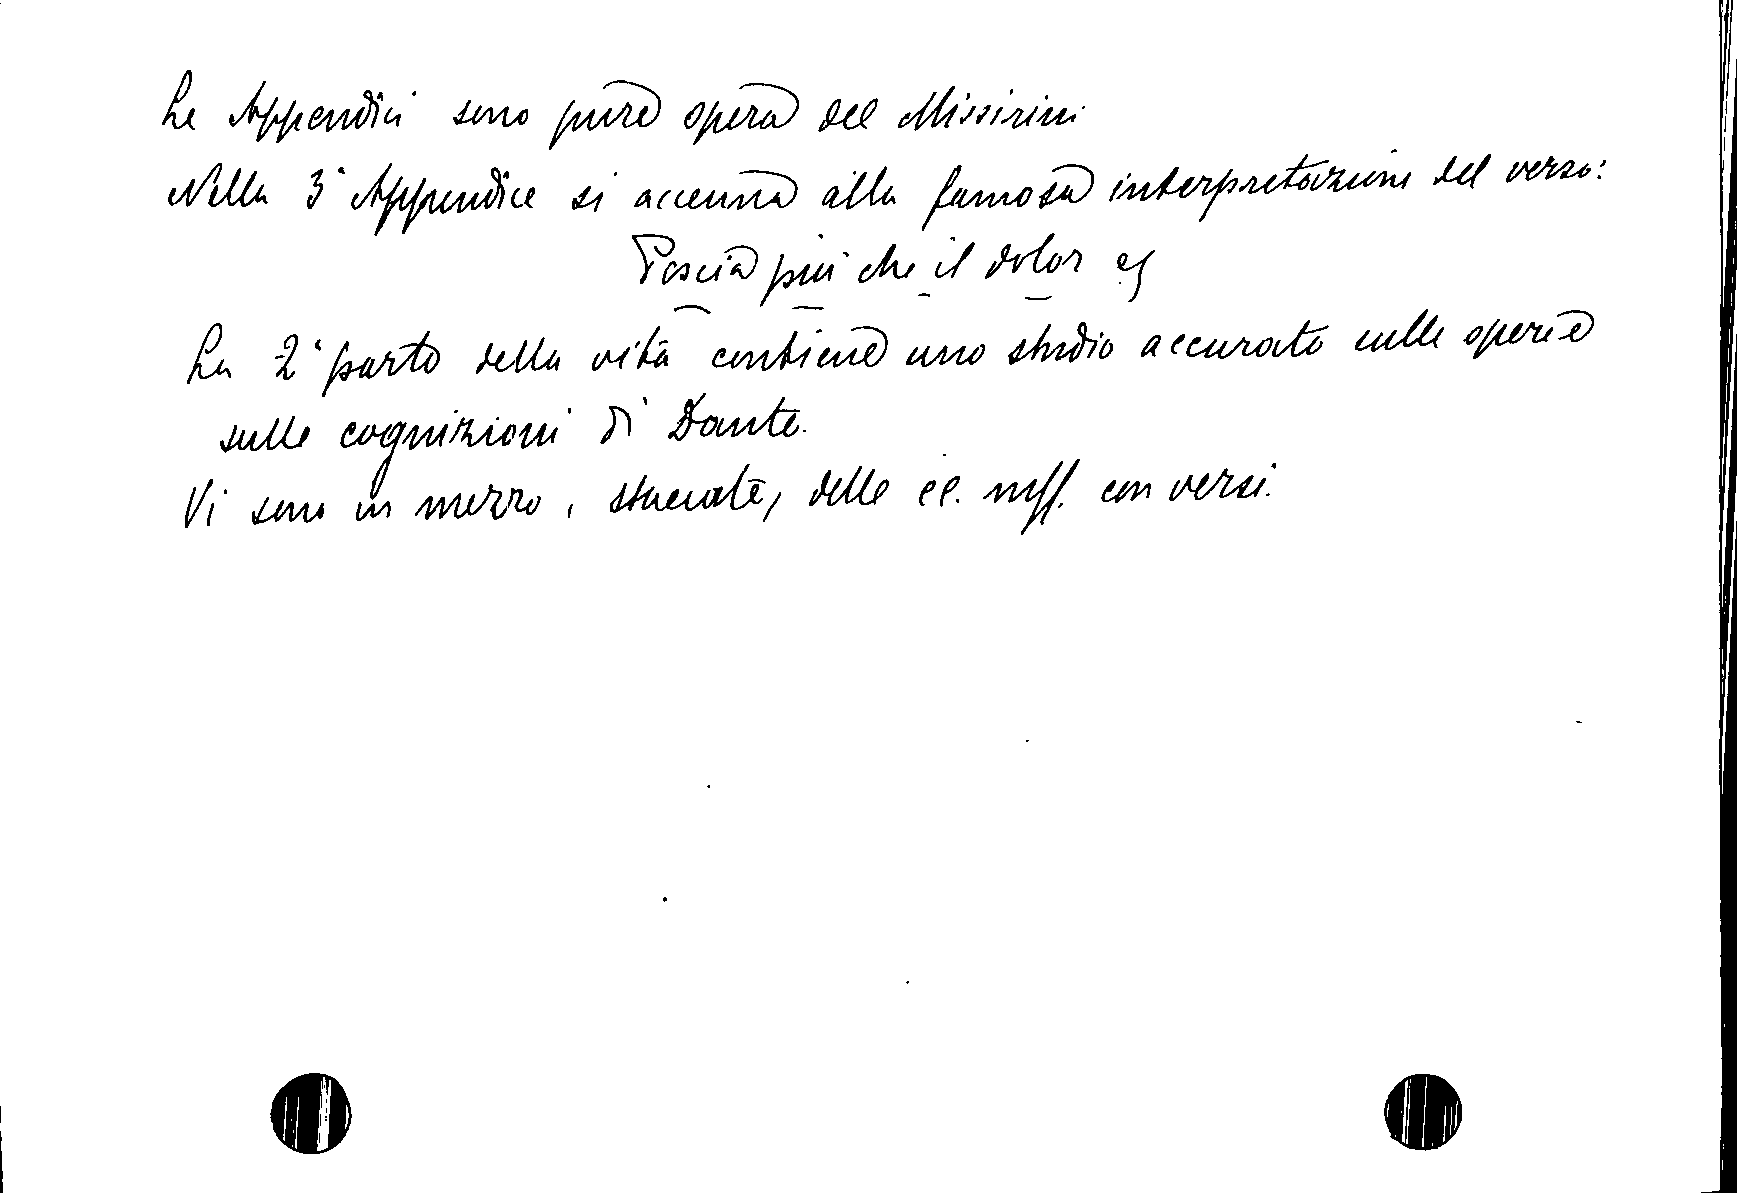 Le Appendici sono pure opera del Missirini
Nella 3ª Appendice si accenna alla famosa interpretazione del verso:
Poscia più che il dolor
La 2ª parte della vita contiene uno studio accurato sulle opere e
sulle cognizioni di Dante.
Vi sono in mezzo, staccate, delle cc. mss. con versi.